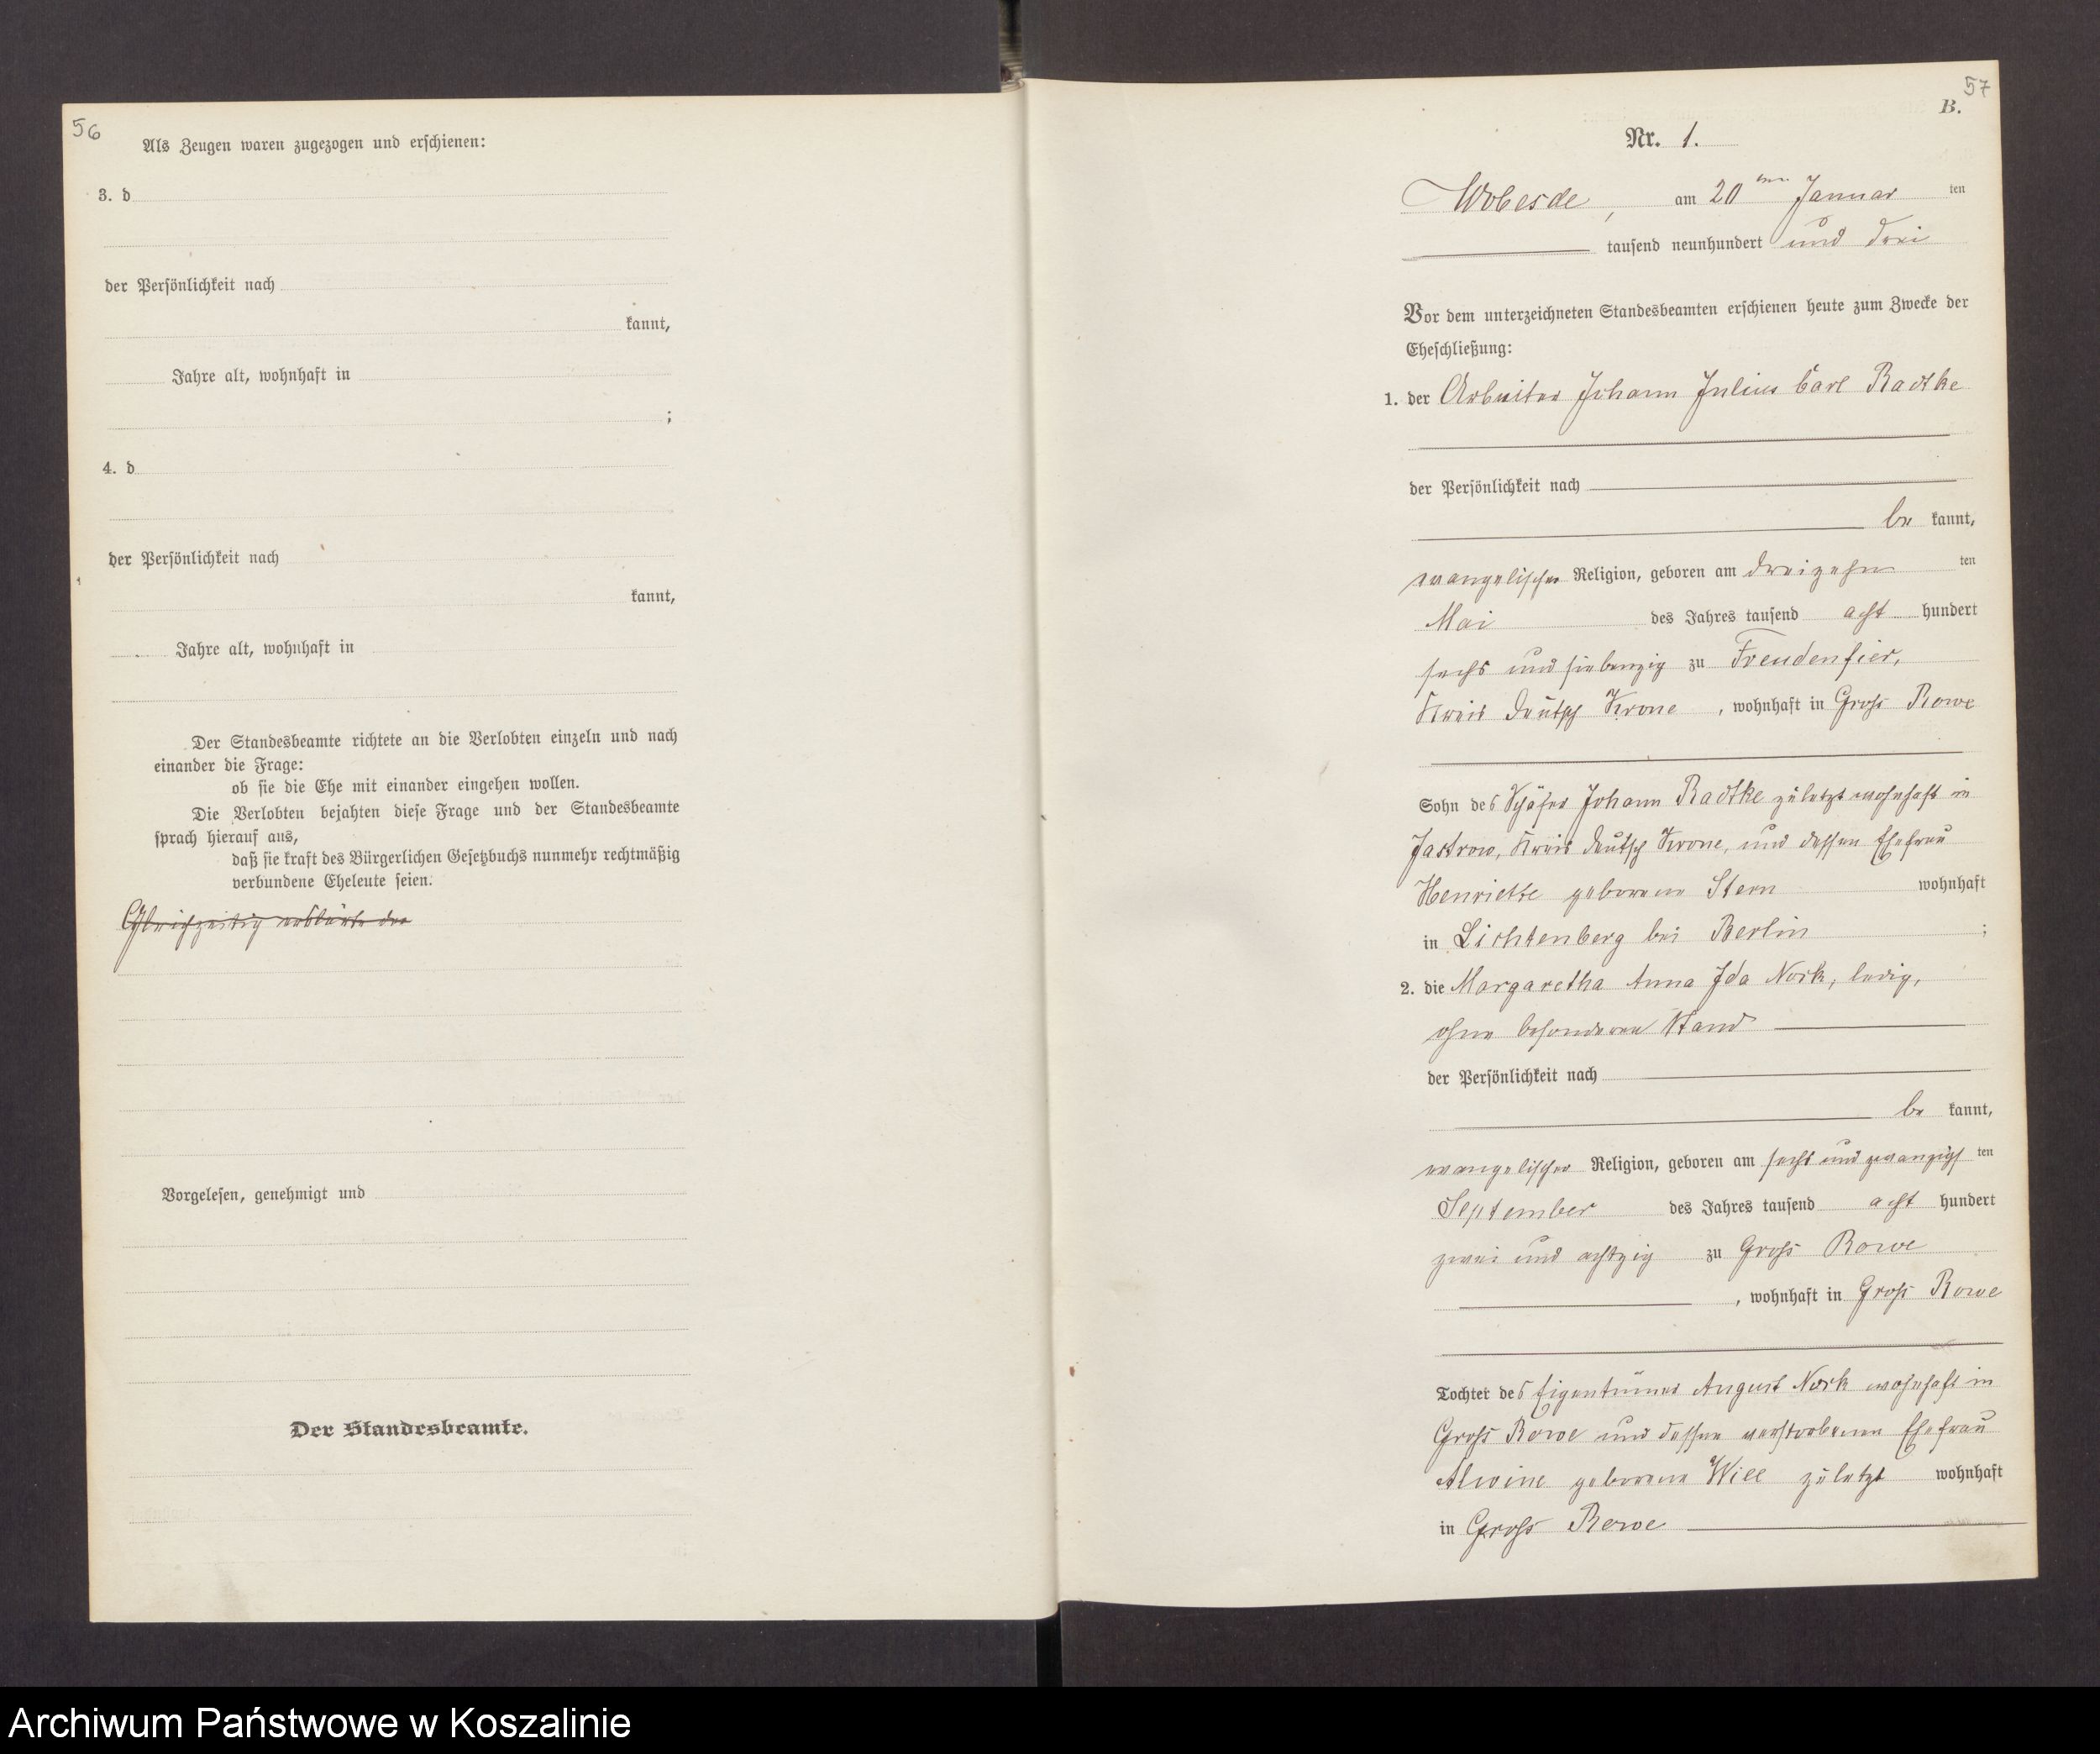 56
Als Zeugen waren zugezogen und erschienen:
3. d
der Persönlichkeit nach
kannt,
Jahre alt, wohnhaft in
;
4. d
der Persönlichkeit nach
kannt,
Jahre alt, wohnhaft in
Der Standesbeamte richtete an die Verlobten einzeln und nach
einander die Frage:
ob sie die Ehe mit einander eingehen wollen.
Die Verlobten bejahten diese Frage und der Standesbeamte
sprach hierauf aus,
daß sie kraft des Bürgerlichen Gesetzbuchs nunmehr rechtmäßig
verbundene Eheleute seien.
Gleichzeitig erklärte der
Vorgelesen, genehmigt und
Der Standesbeamte.
57
B.
Nr. 1.
Wobesde, am 20ten Januar ten
tausend neunhundert und drei
Vor dem unterzeichneten Standesbeamten erschienen heute zum Zwecke der
Eheschließung:
1. der Arbeiter Johann Julius Carl Radtke
der Persönlichkeit nach
be kannt,
evangelischer Religion, geboren am dreizehn ten
Mai des Jahres tausend acht hundert
sechs und siebenzig zu Freudenfier,
Kreis Deutsch Krone, wohnhaft in Groß Rowe
Sohn des Schäfer Johann Radtke zuletzt wohnhaft in
Jastrow, Kreis Deutsch Krone, und dessen Ehefrau
Henriette geborene Stern wohnhaft
in Lichtenberg bei Berlin ;
2. die Margaretha Anna Ida Nork, ledig,
ohne besonderen Stand
der Persönlichkeit nach
be kannt,
evangelischer Religion, geboren am sechs und zwanzigs ten
September des Jahres tausend acht hundert
zwei und achtzig zu Groß Rowe
, wohnhaft in Groß Rowe
Tochter des Eigentümer August Nork wohnhaft in
Groß Rowe und dessen verstorbenen Ehefrau
Alwine geborene Will zuletzt wohnhaft
in Groß Rowe
Archiwum Państwowe w Koszalinie